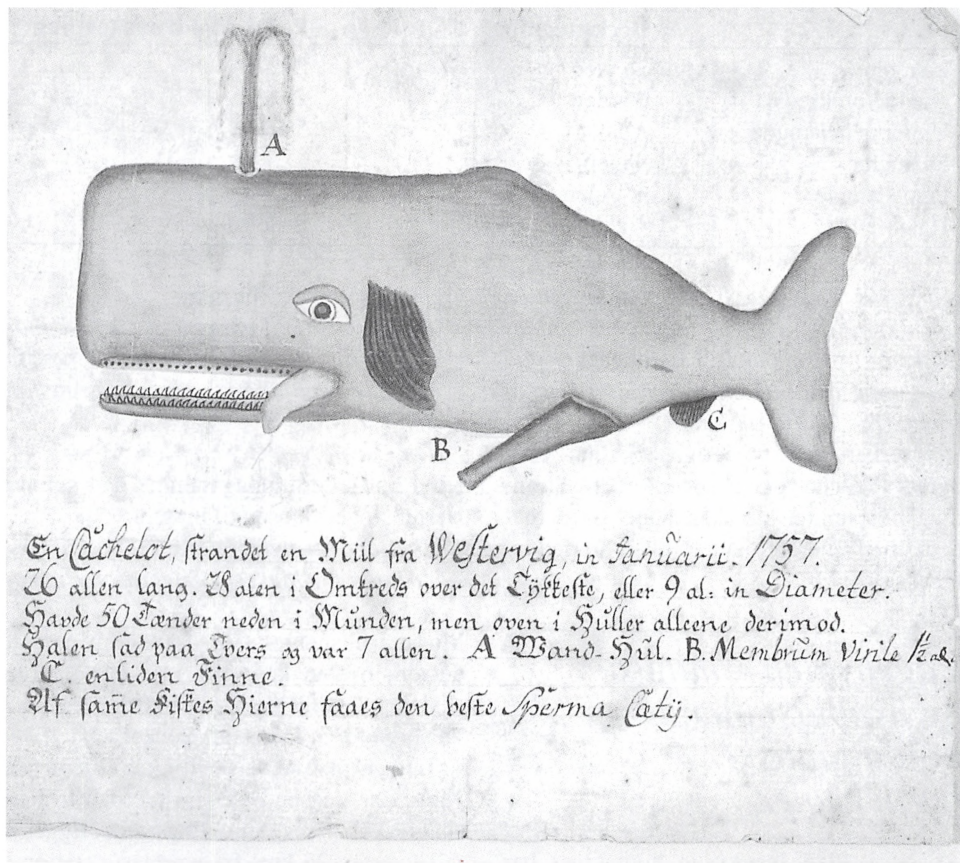 A
B
C
En Cachelot, strandet en Miil fra Westervig, in Januarii. 1757.
26 allen lang. 28 alen i Omkreds over det Tykkeste, eller 9 al: in Diameter.
Havde 50 Tænder neden i Munden, men oven i Huller alleene derimod.
Halen sad paa Tvers og var 7 allen. A Wand-Hul. B. Membrum Virile 1½ al.
C. en liden Finne.
Af sam̄e Fiskes Hierne faaes den beste Sperma Cætij.